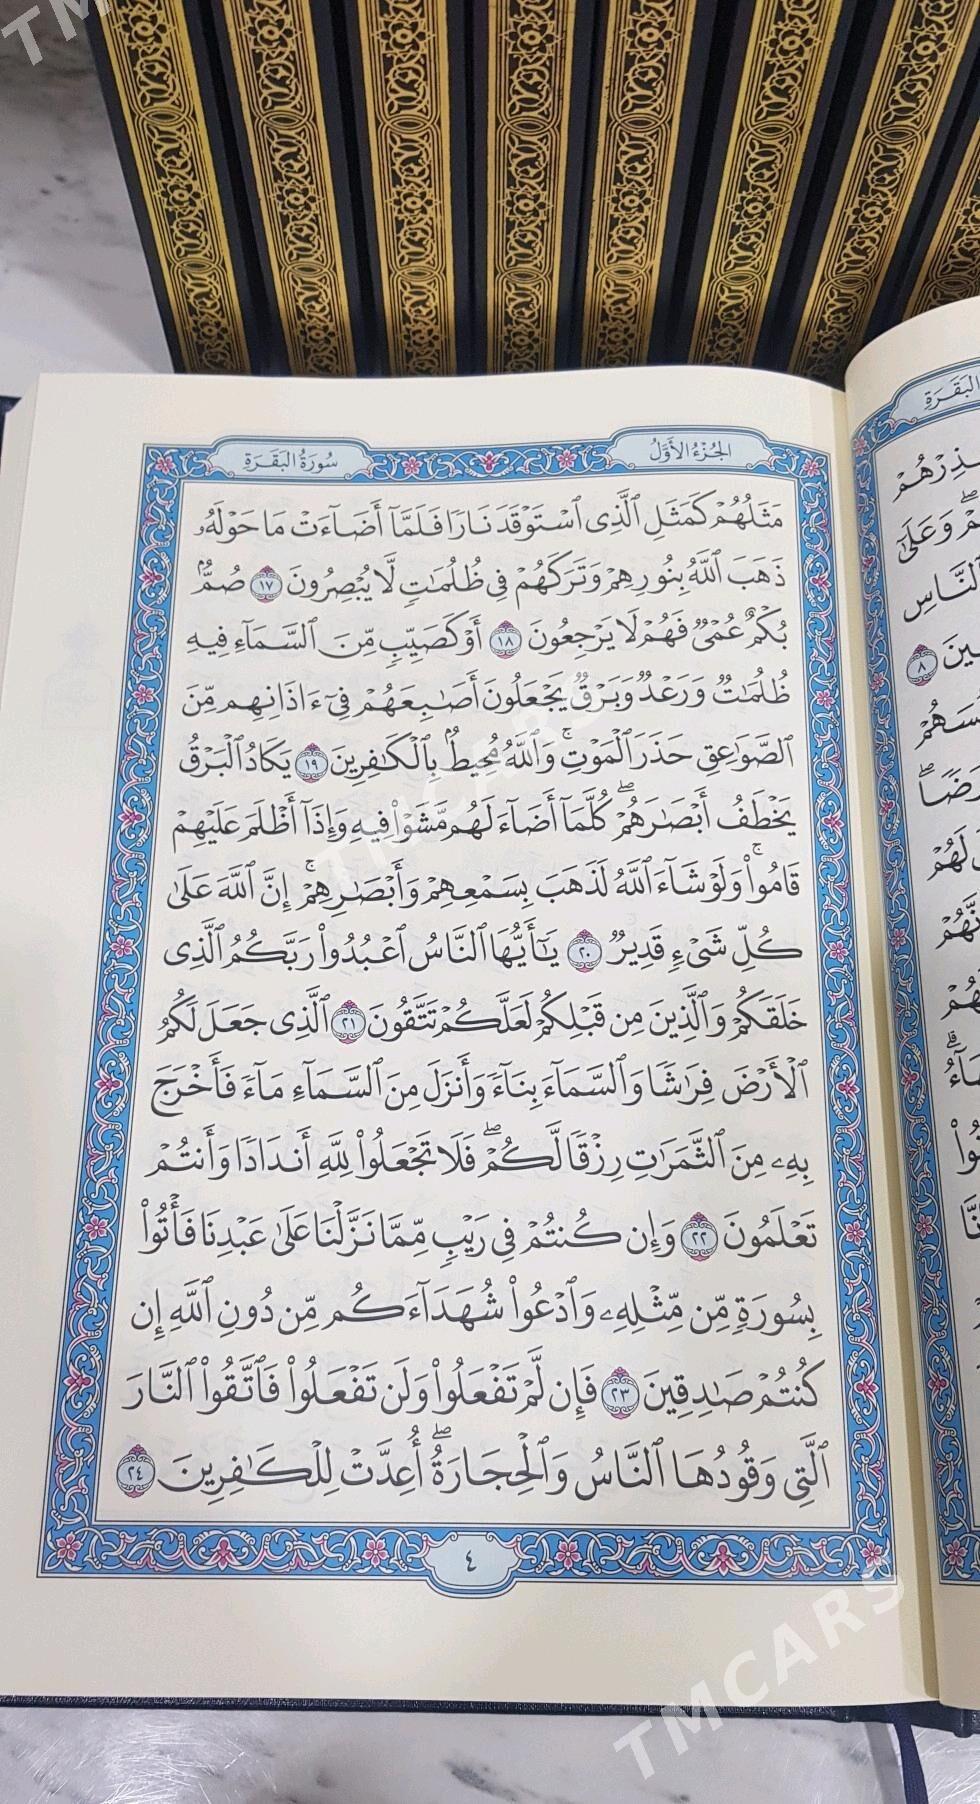 TM
TMCARS
الجُزْءُ الأَوَّلُ
سُورَةُ البَقَرَةِ
مَثَلُهُمْ كَمَثَلِ ٱلَّذِى ٱسْتَوْقَدَ نَارًا فَلَمَّآ أَضَآءَتْ مَا حَوْلَهُۥ
ذَهَبَ ٱللَّهُ بِنُورِهِمْ وَتَرَكَهُمْ فِى ظُلُمَٰتٍ لَّا يُبْصِرُونَ ١٧ صُمٌّۢ
بُكْمٌ عُمْىٌ فَهُمْ لَا يَرْجِعُونَ ١٨ أَوْ كَصَيِّبٍ مِّنَ ٱلسَّمَآءِ فِيهِ
ظُلُمَٰتٌ وَرَعْدٌ وَبَرْقٌ يَجْعَلُونَ أَصَٰبِعَهُمْ فِىٓ ءَاذَانِهِم مِّنَ
ٱلصَّوَٰعِقِ حَذَرَ ٱلْمَوْتِ ۚ وَٱللَّهُ مُحِيطٌۢ بِٱلْكَٰفِرِينَ ١٩ يَكَادُ ٱلْبَرْقُ
يَخْطَفُ أَبْصَٰرَهُمْ ۖ كُلَّمَآ أَضَآءَ لَهُم مَّشَوْا۟ فِيهِ وَإِذَآ أَظْلَمَ عَلَيْهِمْ
قَامُوا۟ ۚ وَلَوْ شَآءَ ٱللَّهُ لَذَهَبَ بِسَمْعِهِمْ وَأَبْصَٰرِهِمْ ۚ إِنَّ ٱللَّهَ عَلَىٰ
كُلِّ شَىْءٍ قَدِيرٌ ٢٠ يَٰٓأَيُّهَا ٱلنَّاسُ ٱعْبُدُوا۟ رَبَّكُمُ ٱلَّذِى
خَلَقَكُمْ وَٱلَّذِينَ مِن قَبْلِكُمْ لَعَلَّكُمْ تَتَّقُونَ ٢١ ٱلَّذِى جَعَلَ لَكُمُ
ٱلْأَرْضَ فِرَٰشًا وَٱلسَّمَآءَ بِنَآءً وَأَنزَلَ مِنَ ٱلسَّمَآءِ مَآءً فَأَخْرَجَ
بِهِۦ مِنَ ٱلثَّمَرَٰتِ رِزْقًا لَّكُمْ ۖ فَلَا تَجْعَلُوا۟ لِلَّهِ أَندَادًا وَأَنتُمْ
تَعْلَمُونَ ٢٢ وَإِن كُنتُمْ فِى رَيْبٍ مِّمَّا نَزَّلْنَا عَلَىٰ عَبْدِنَا فَأْتُوا۟
بِسُورَةٍ مِّن مِّثْلِهِۦ وَٱدْعُوا۟ شُهَدَآءَكُم مِّن دُونِ ٱللَّهِ إِن
كُنتُمْ صَٰدِقِينَ ٢٣ فَإِن لَّمْ تَفْعَلُوا۟ وَلَن تَفْعَلُوا۟ فَٱتَّقُوا۟ ٱلنَّارَ
ٱلَّتِى وَقُودُهَا ٱلنَّاسُ وَٱلْحِجَارَةُ ۖ أُعِدَّتْ لِلْكَٰفِرِينَ ٢٤
٤
TMCARS
البَقَرَةِ
وَعَلَىٰ
ٱلنَّاسِ
٨
لَهُمْ